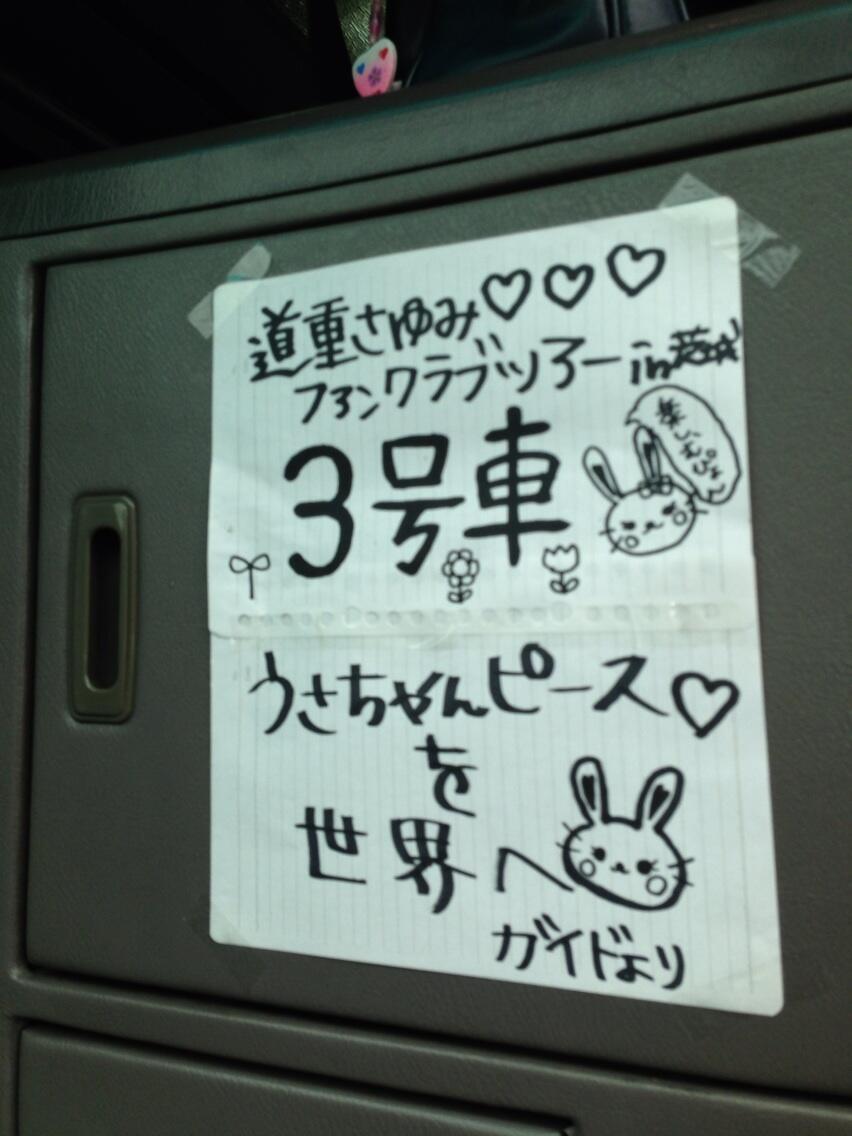 道重さゆみ♡♡♡
ファンクラブツアー in茨城
3号車
楽しむぴょん
うさちゃんピース♡
を
世界へ
ガイドより